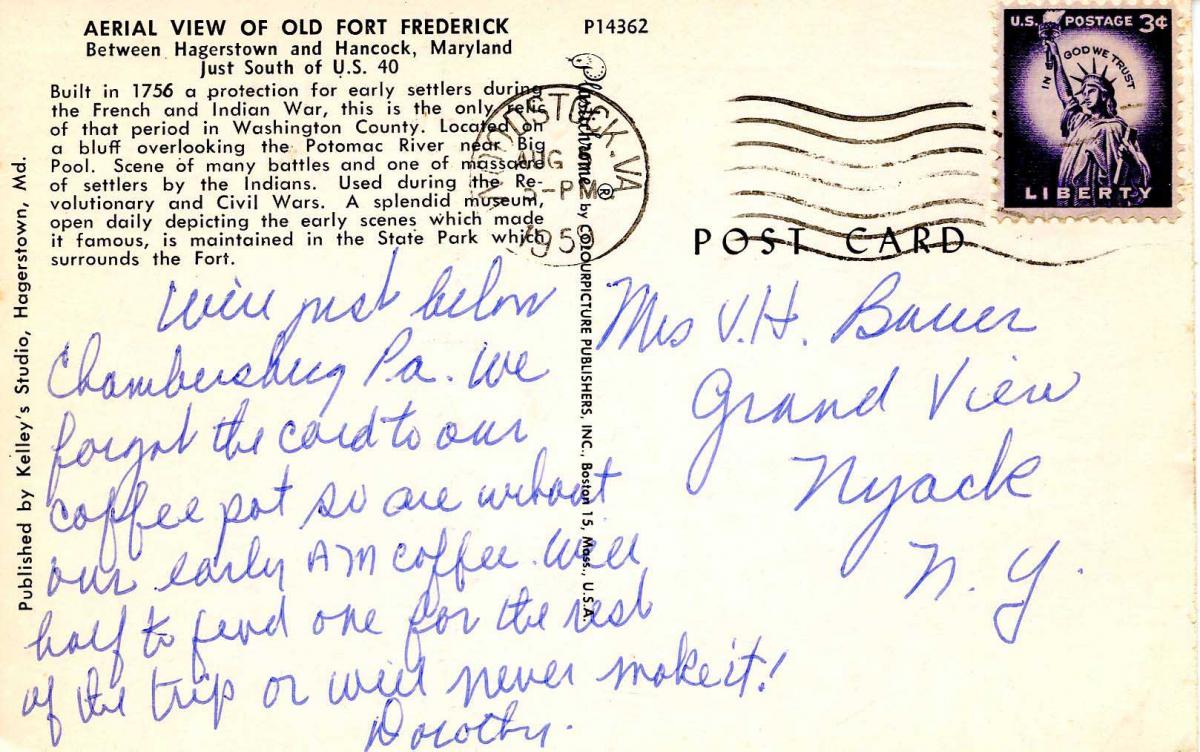 AERIAL VIEW OF OLD FORT FREDERICK
Between Hagerstown and Hancock, Maryland
Just South of U.S. 40
Built in 1756 a protection for early settlers during
the French and Indian War, this is the only relic
of that period in Washington County. Located on
a bluff overlooking the Potomac River near Big
Pool. Scene of many battles and one of massacre
of settlers by the Indians. Used during the Re-
volutionary and Civil Wars. A splendid museum,
open daily depicting the early scenes which made
it famous, is maintained in the State Park which
surrounds the Fort.
Published by Kelley's Studio, Hagerstown, Md.
We're just below
Chambersburg Pa. We
forgot the cord to our
coffee pot so are without
our early AM coffee. We'll
half to find one for the rest
of the trip or we'll never make it!
Dorothy.
P14362
Plastichrome® by COLOURPICTURE PUBLISHERS, INC., Boston 15, Mass., U.S.A.
WOODSTOCK, VA
AUG
PM
195
U.S. POSTAGE 3¢
IN GOD WE TRUST
LIBERTY
POST CARD
Mrs V.H. Bauer
Grand View
Nyack
N.Y.